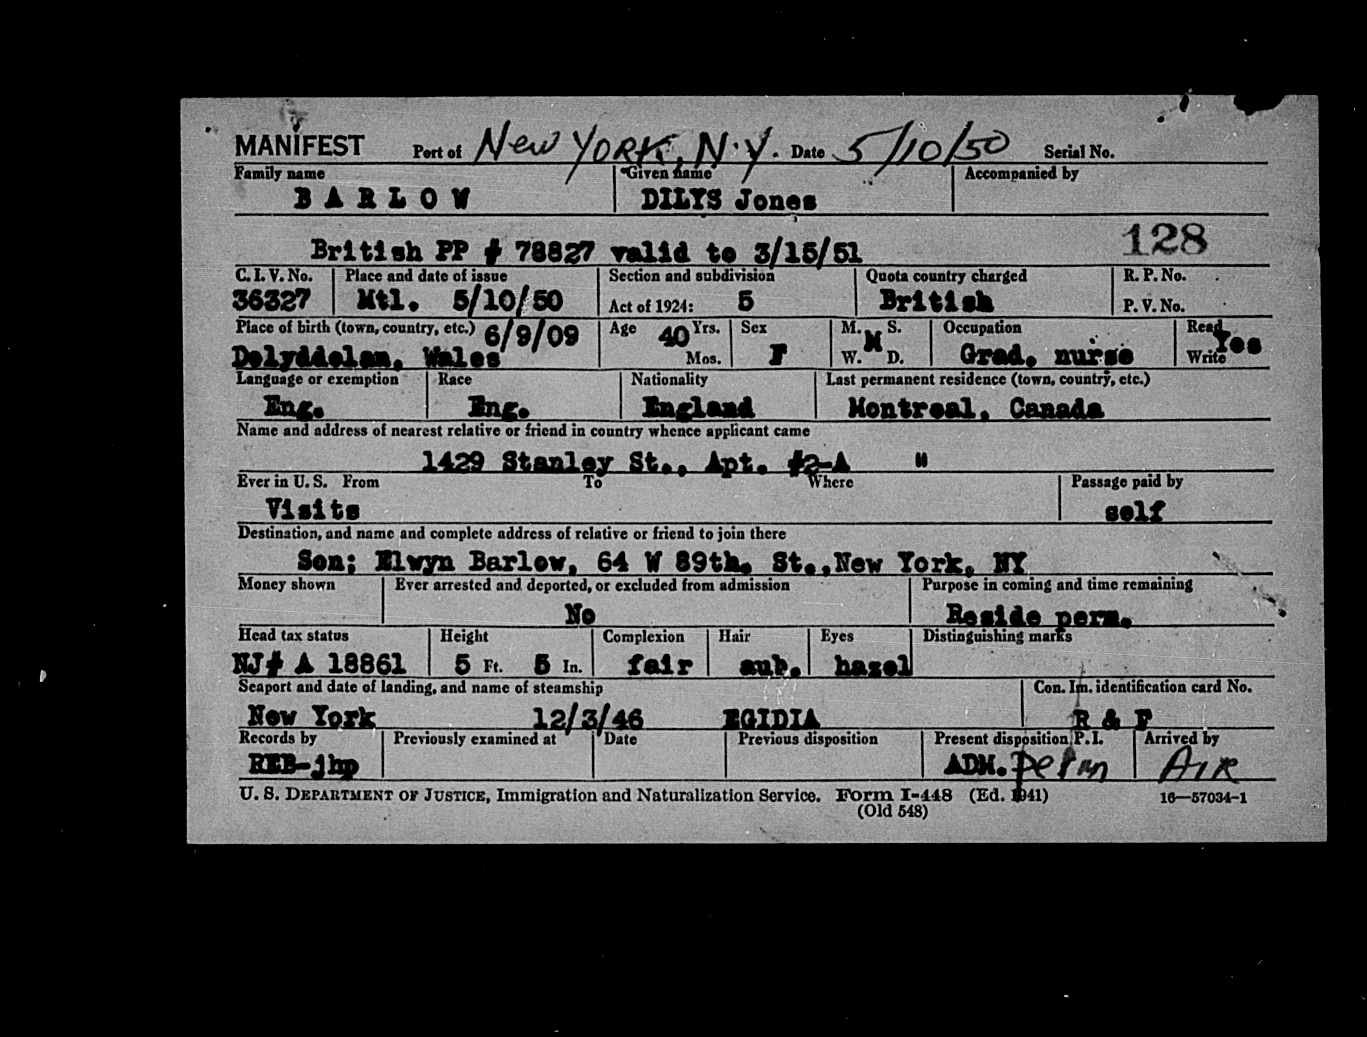 MANIFEST Port of New YORK, N.Y. Date 5/10/50 Serial No.
Family name Given name Accompanied by
BARLOW DILYS Jones
128
British PP # 78827 valid to 3/15/51
C. I. V. No. Place and date of issue Section and subdivision Quota country charged R. P. No.
36327 Mtl. 5/10/50 Act of 1924: 5 British P. V. No.
Place of birth (town, country, etc.) 6/9/09 Age 40 Yrs. Sex M. S. Occupation Read Yes
Dolyddelan, Wales Mos. F M W. D. Grad. nurse Write
Language or exemption Race Nationality Last permanent residence (town, country, etc.)
Eng. Eng. England Montreal, Canada
Name and address of nearest relative or friend in country whence applicant came
1429 Stanley St., Apt. #2-A "
Ever in U. S. From To Where Passage paid by
Visits self
Destination, and name and complete address of relative or friend to join there
Son; Elwyn Barlow, 64 W 89th. St.,New York, NY
Money shown Ever arrested and deported, or excluded from admission Purpose in coming and time remaining
No Reside perm.
Head tax status Height Complexion Hair Eyes Distinguishing marks
NJ# A 18861 5 Ft. 5 In. fair aub. hazel
Seaport and date of landing, and name of steamship Con. Im. identification card No.
New York 12/3/46 EGIDIA R & F
Records by Previously examined at Date Previous disposition Present disposition P. I. Arrived by
REB-jhp ADM. Perm AIR
U. S. DEPARTMENT OF JUSTICE, Immigration and Naturalization Service. Form I-448 (Ed. 1941) 16—57034-1
(Old 548)